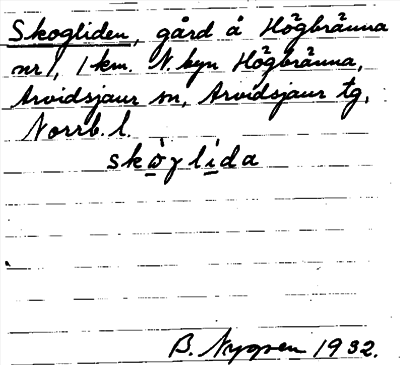 Skogliden, gård å Högbränna
nr 1, 1 km. N. byn Högbränna,
Arvidsjaur sn, Arvidsjaur tg,
Norrb. l.
skò̱γli̱da
B. Nygren 1932.